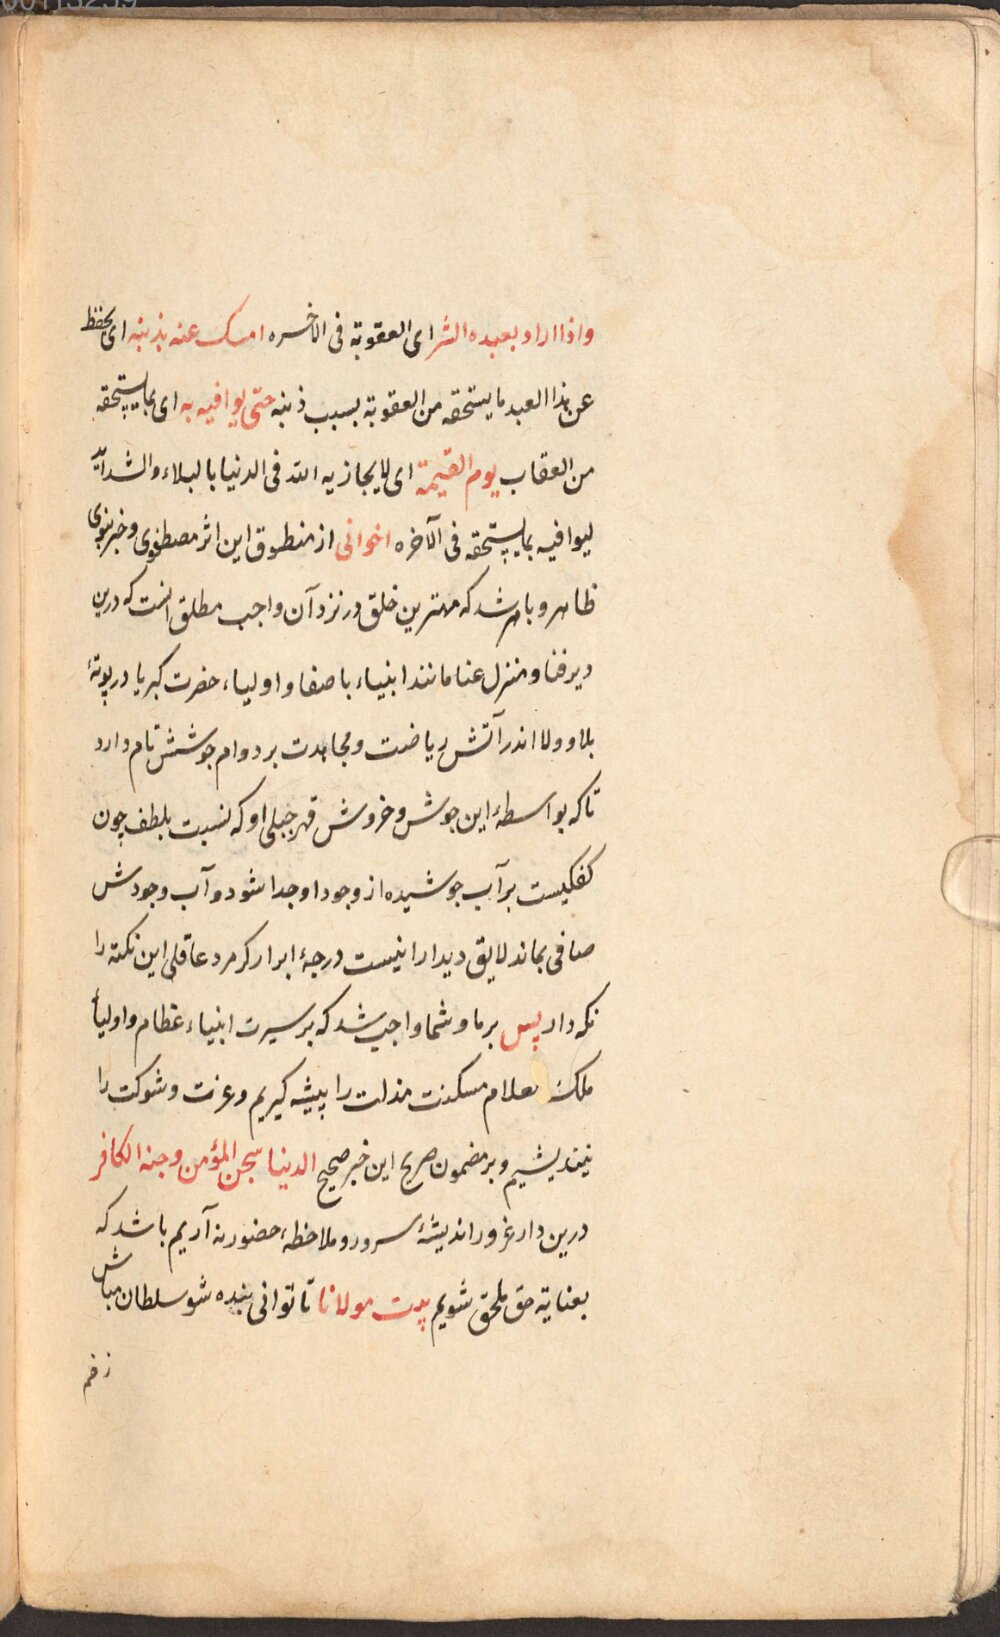 واذا اراد بعبده الشر ای العقوبة فی الآخره امسک عنه بذنبه ای یحفظ
عن هذا العبد ما یستحقه من العقوبة بسبب ذنبه حتی یوافیه به ای بما یستحقه
من العقاب یوم القیمة ای لا یجازیه الله فی الدنیا بالبلاء والشدائد
لیوافیه بما یستحقه فی الآخره اخوانی از منطوق این اثر مصطفوی و خبر نبوی
ظاهر و باهر شد که مهترین خلق در نزد آن واجب مطلق انست که درین
دیر فنا و منزل عنا مانند انبیاء باصفا و اولیاء حضرت کبریا در پوتهٔ
بلا و ولا اندر آتش ریاضت و مجاهدت بر دوام جوشش تام دارد
تا که بواسطهٔ این جوش و خروش قهر جبلی او که نسبت بلطف چون
کفکیست بر آب جوشیده از وجود او جدا شود و آب وجودش
صافی بماند لایق دیدار اینست درجهٔ ابرار کر مرد عاقلی این نکته را
نکه دار پس بر ما و شما واجب شد که بر سیرت انبیاء عظام و اولیاء
ملک علام مسکنت مذلت را پیشه کیریم و عزت و شوکت را
نیندیشیم و بر مضمون صریح این خبر صحیح الدینا سجن المؤمن وجنة الکافر
درین دار غرور اندیشهٔ سرور و ملاحظهٔ حضور نه آریم باشد که
بعنایة حق ملحق شویم بیت مولانا تا توانی بنده شو سلطان مباش
زخم